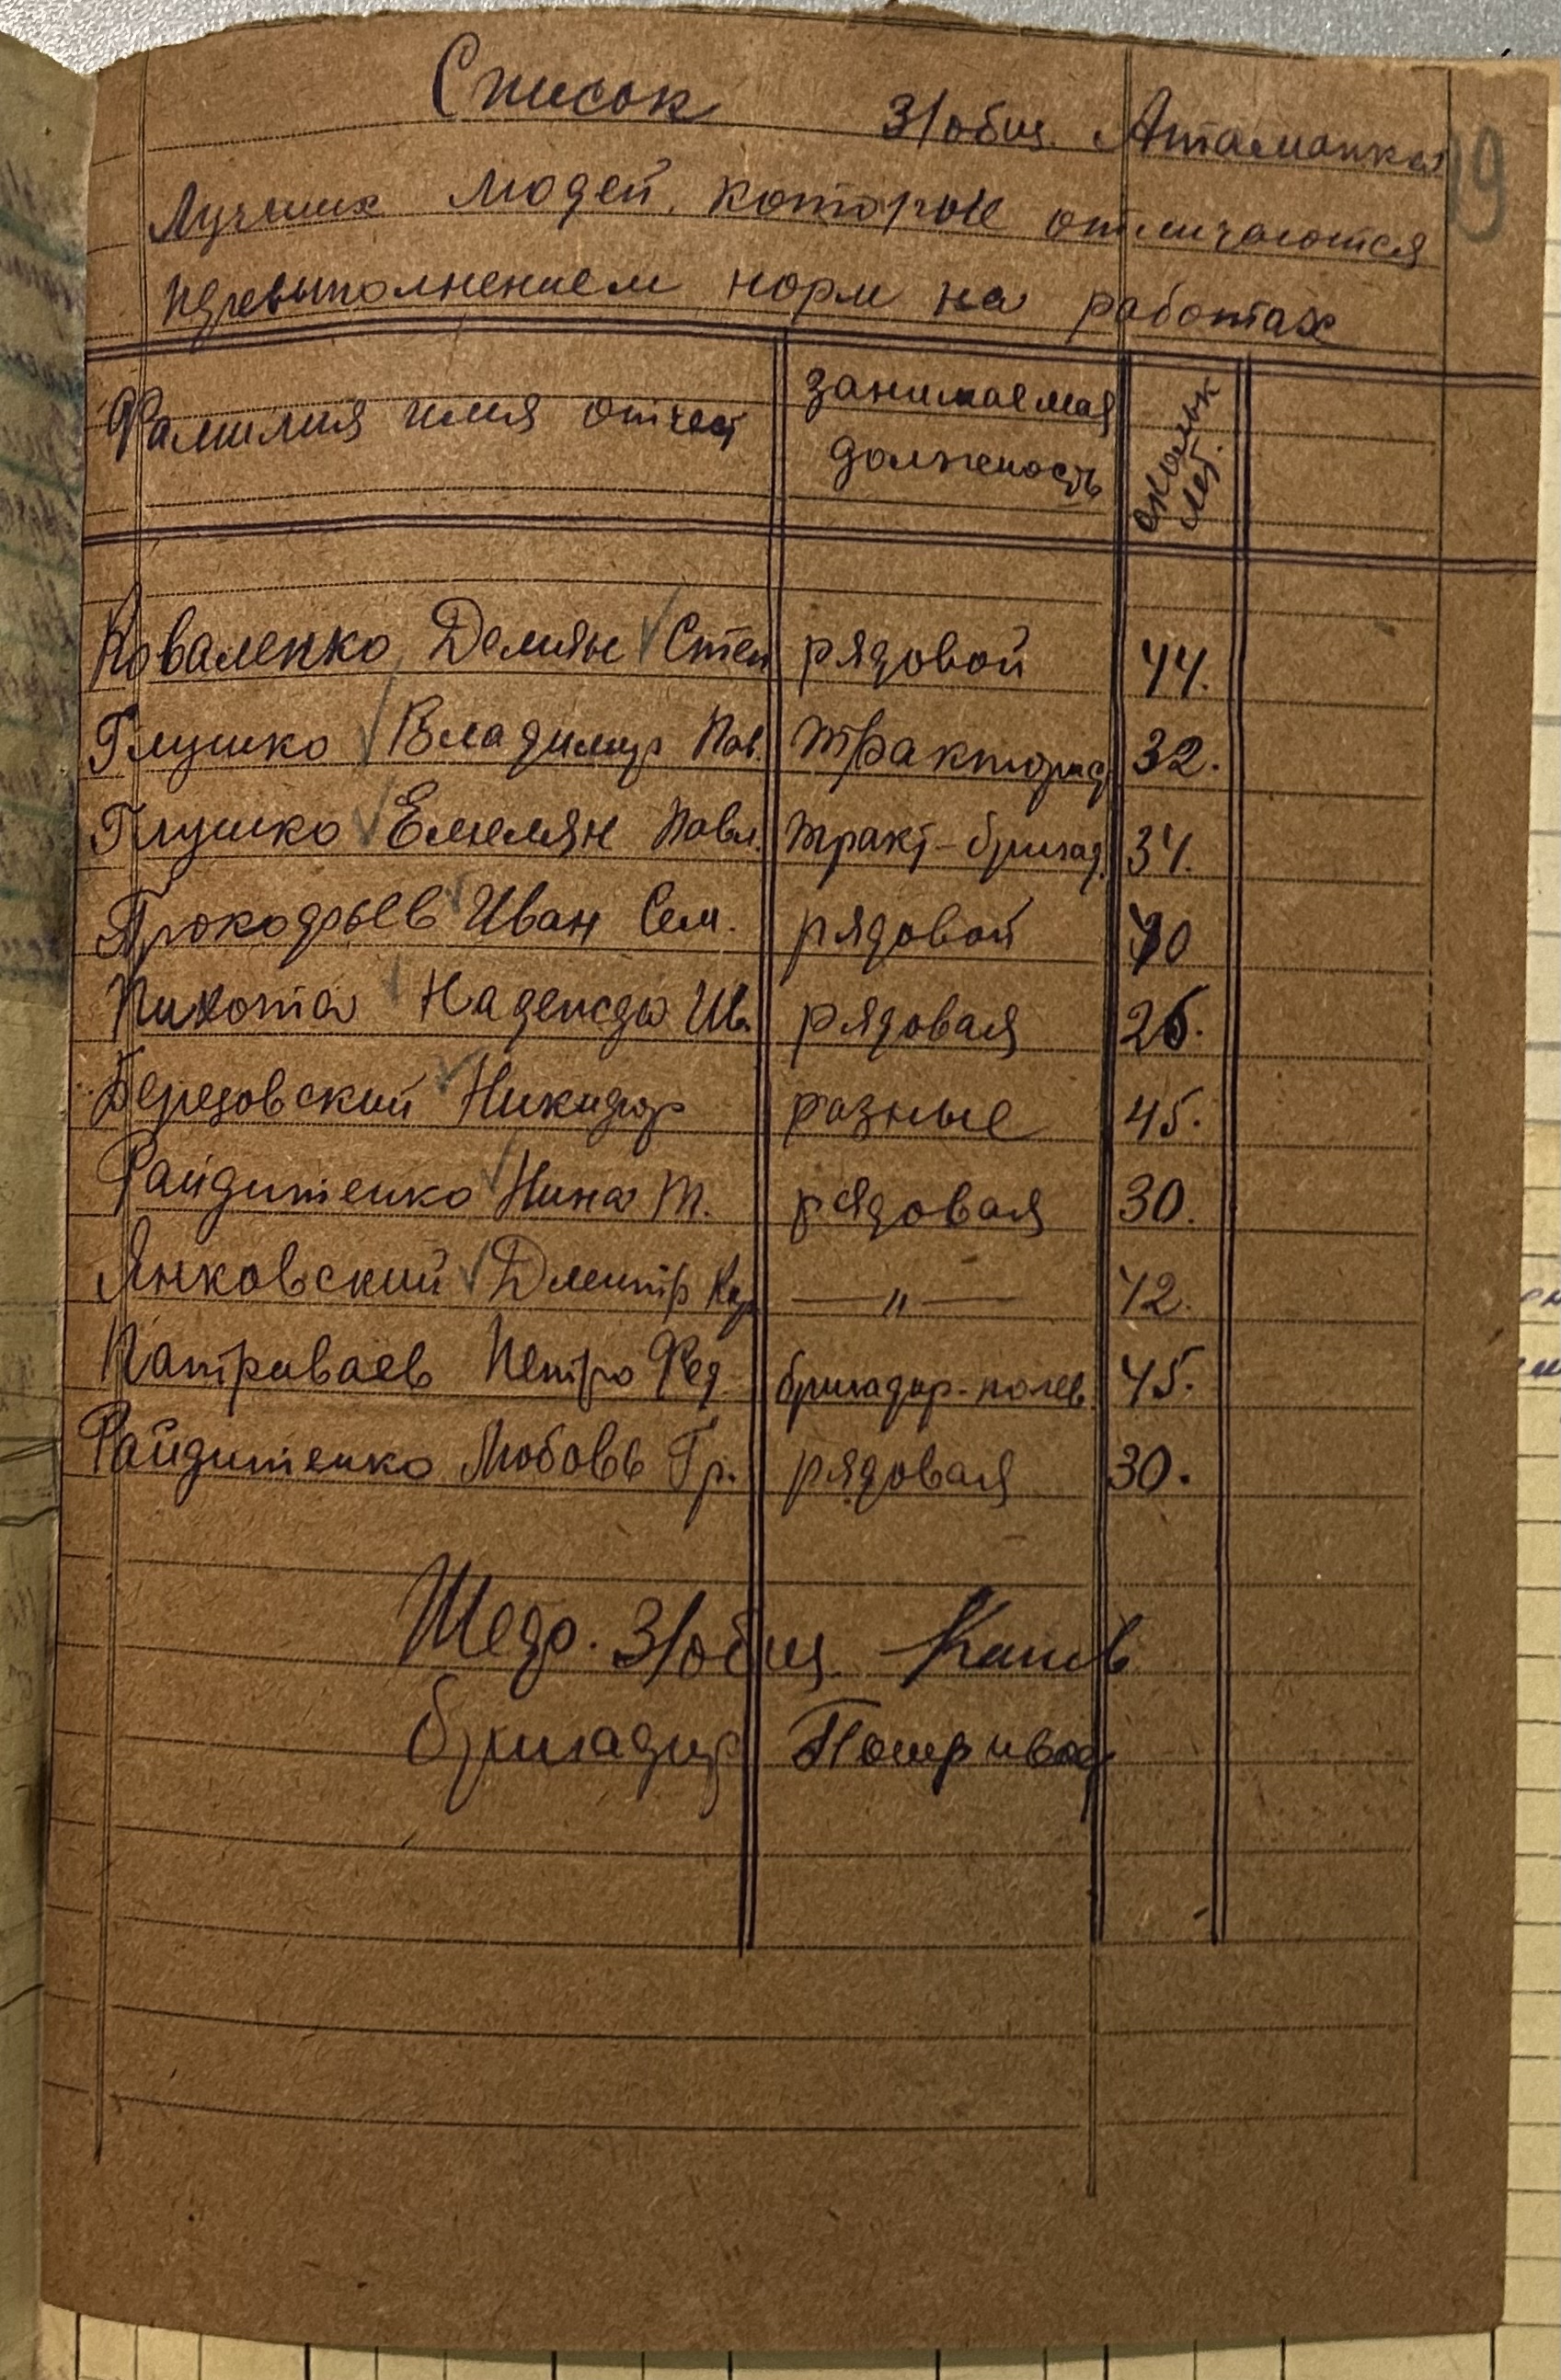 Список З/общ. Атаманка
19
Лучших людей, которые отличаются
перевыполнением норм на работах
Фамилия имя отчест занимаемая должность скольк лет.
Коваленко Демян Степ рядовой 44.
Глушко Владимир Пав. Тракторист 32.
Глушко Емелян Павл. Тракт-бригад. 34.
Прокофьев Иван Сем. рядовой 40
Пихота Надежда Ив. рядовая 26.
Березовский Никифор разные 45.
Файдитенко Нина Т. рядовая 30.
Янковский Дмитр Кар —〃— 42.
Патраваев Петро Фед. бригадир-полев. 45.
Файдитенко Любовь Гр. рядовая 30.
З/общ.
бригадир